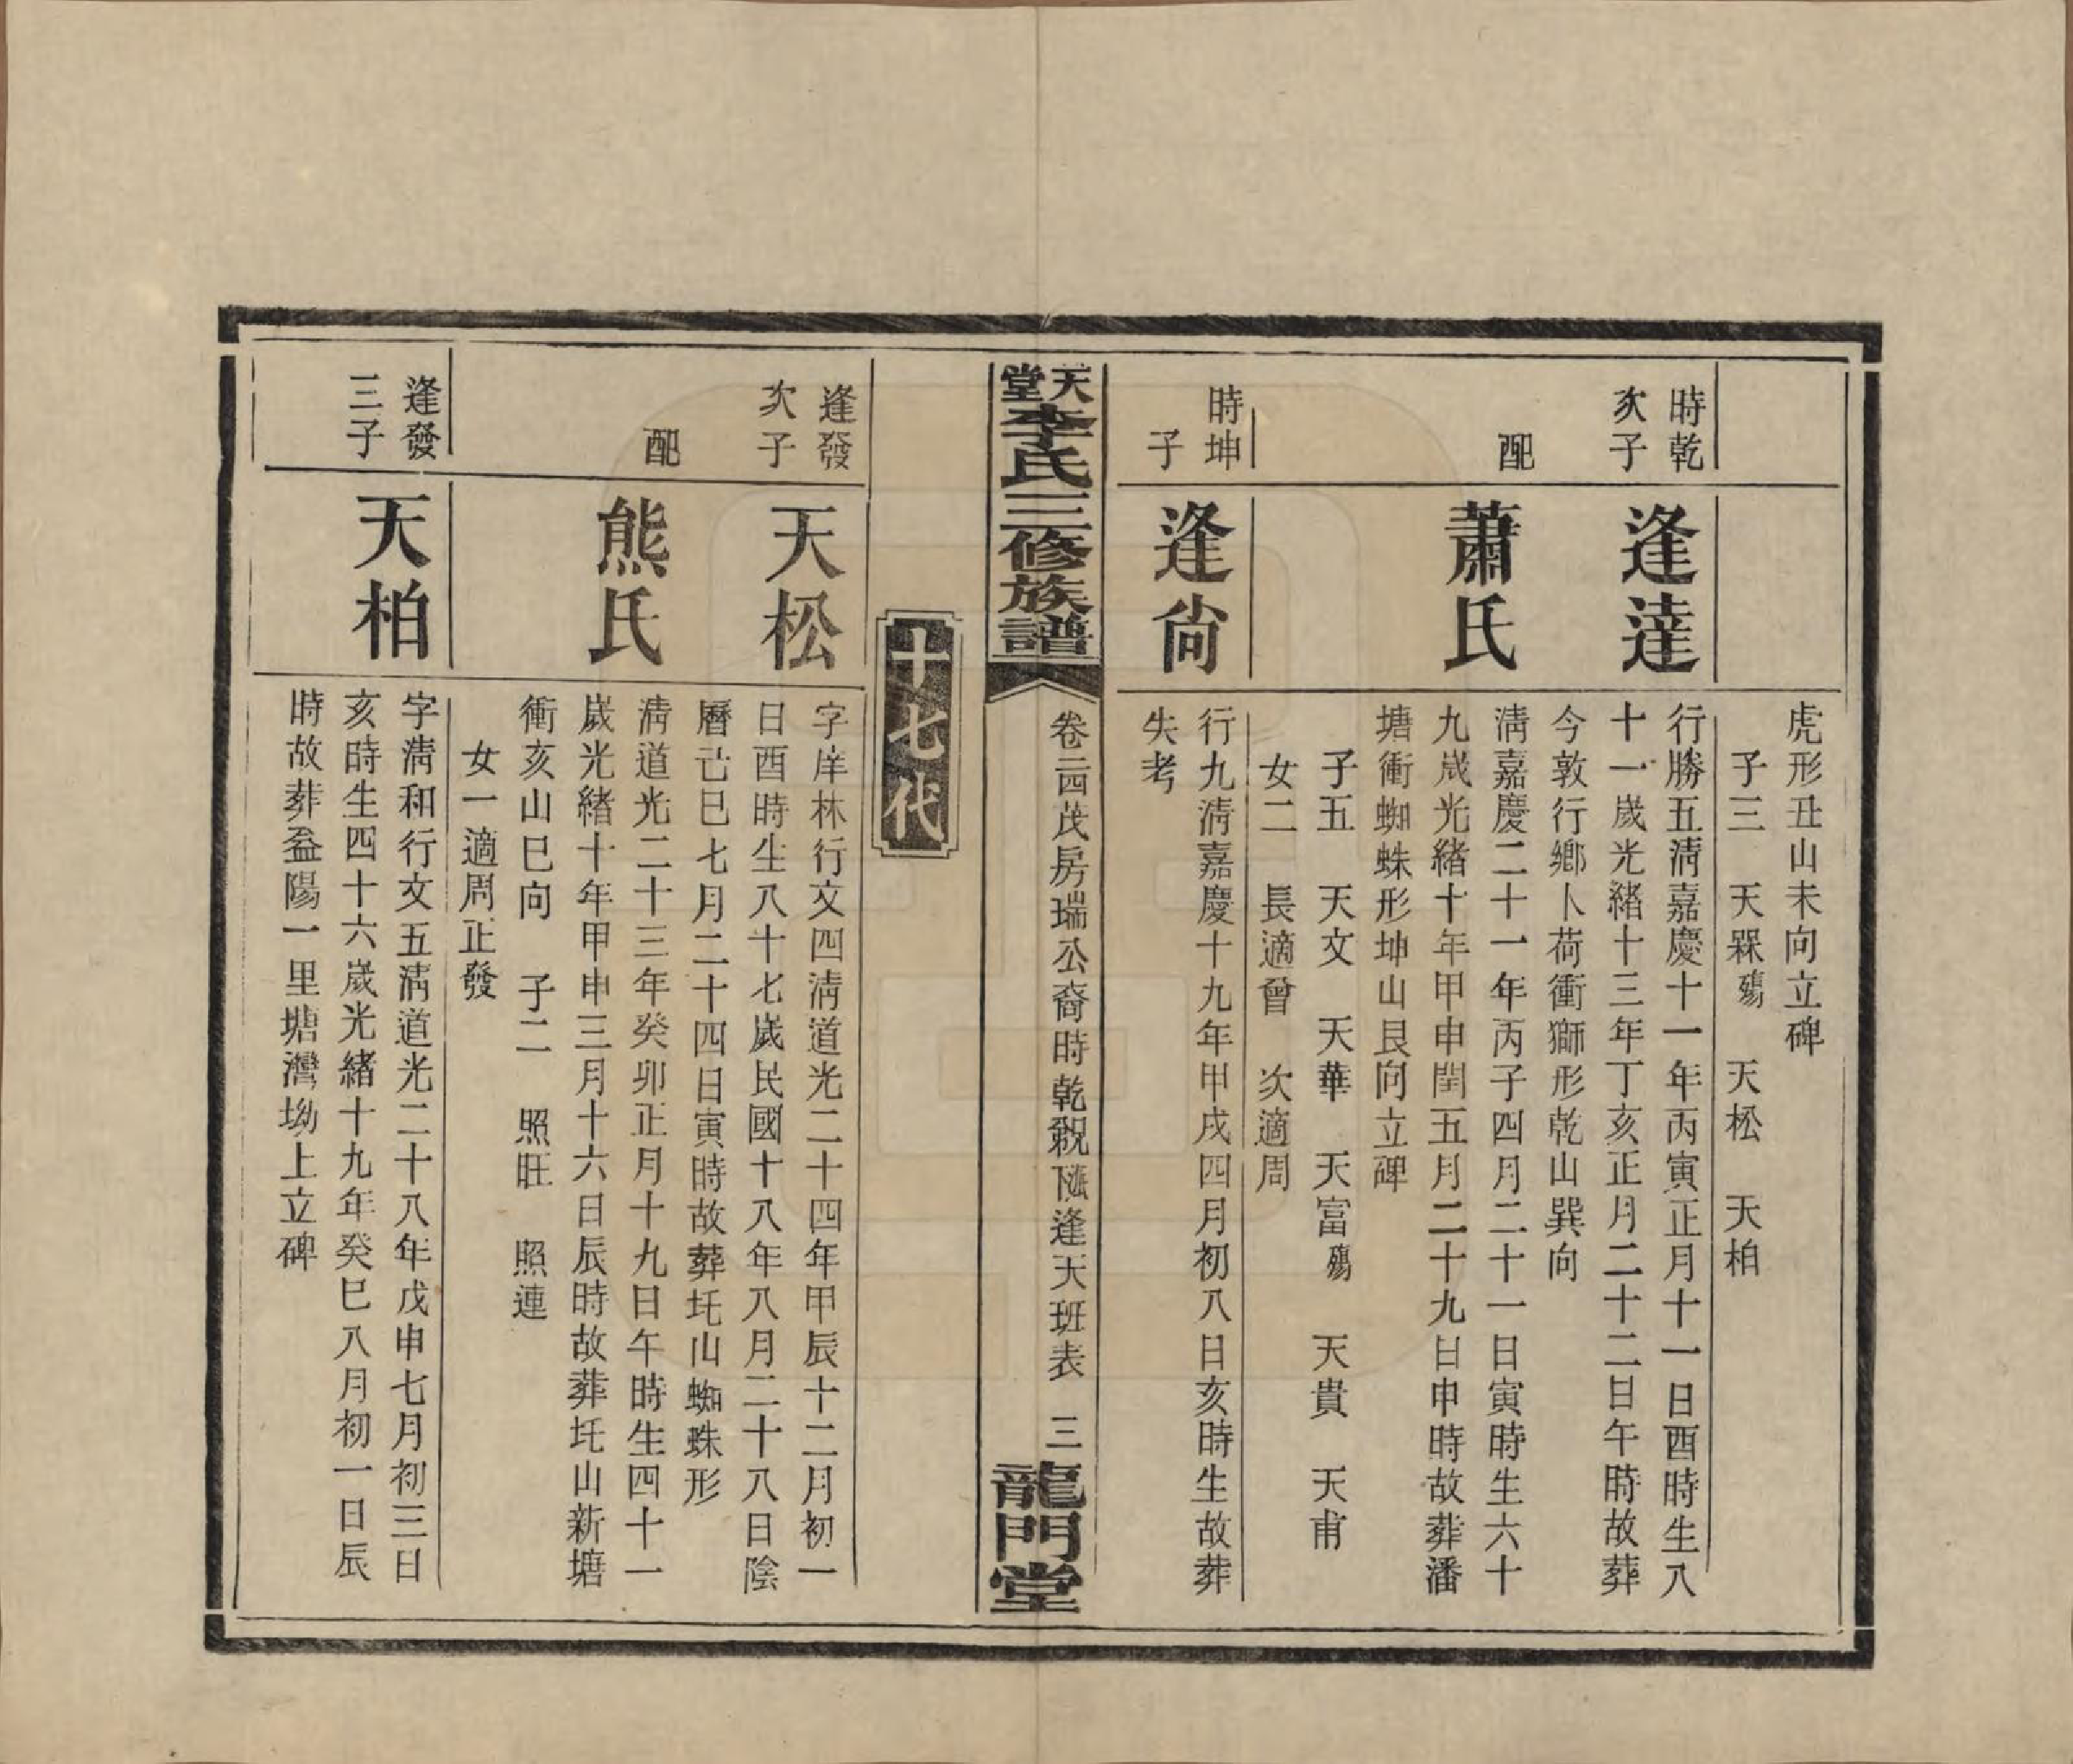 虎形丑山未向立碑
子三　天槑殤　天松　天柏
時乾
次子
逢達
行勝五淸嘉慶十一年丙寅正月十一日酉時生八
十一歲光緒十三年丁亥正月二十二日午時故葬
今敦行鄉卜荷衝獅形乾山巽向
配
蕭氏
淸嘉慶二十一年丙子四月二十一日寅時生六十
九歲光緒十年甲申閏五月二十九日申時故葬潘
塘衝蜘蛛形坤山艮向立碑
子五　天文　天華　天富殤　天貴　天甫
女二　長適曾　次適周
時坤
子
逢尙
行九淸嘉慶十九年甲戌四月初八日亥時生故葬
失考
天堂李氏三修族譜
卷二四茂房瑞公裔時乾覞隲逢天班表　三
龍門堂
十七代
逢發
次子
天松
字庠林行文四淸道光二十四年甲辰十二月初一
日酉時生八十七歲民國十八年八月二十八日陰
曆己巳七月二十四日寅時故葬圫山蜘蛛形
配
熊氏
淸道光二十三年癸卯正月十九日午時生四十一
歲光緒十年甲申三月十六日辰時故葬圫山新塘
衝亥山巳向　子二　照旺　照連
女一適周正發
逢發
三子
天柏
字淸和行文五淸道光二十八年戊申七月初三日
亥時生四十六歲光緒十九年癸巳八月初一日辰
時故葬益陽一里塘灣坳上立碑